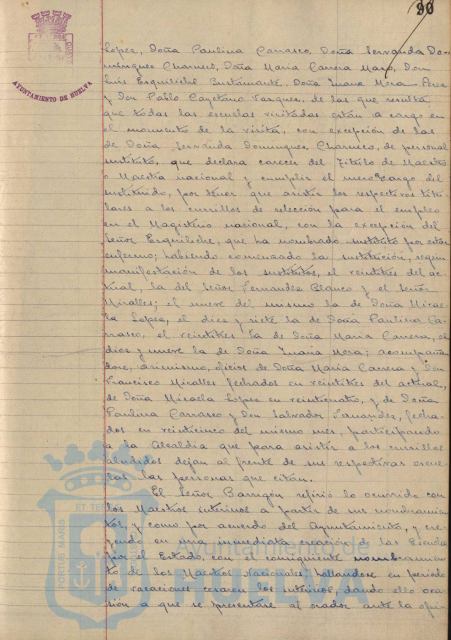 90
AYUNTAMIENTO DE HUELVA
López, Doña Paulina Carrasco, Doña Servanda Do-
minguez Charneco, Doña Maria Carrera Mazo, Don
Luis Esquiliche Bustamante, Doña Juana Mora Perea
y Don Pablo Cayetano Vazquez, de las que resulta
que todas las escuelas visitadas están a cargo en
el momento de la visita, con excepción de las
de Doña Servanda Dominguez Charneco, de personal
sustituto, que declara carecer del Titulo de Maestro
o Maestra nacional y cumplir el encargo del
sustituido, por tener que asistir los respectivos titu-
lares a los cursillos de selección para el empleo
en el Magisterio nacional, con la excepción del
Señor Esquiliche, que ha nombrado sustituto por estar
enfermo; habiendo comenzado la sustitución, según
manifestación de los sustitutos, el veintitres del ac-
tual, la del Señor Fernandez Blanco y el Señor
Miralles; el nueve del mismo la de Doña Micae-
la Lopez, el diez y siete la de Doña Paulina Ca-
rrasco, el veintitres la de Doña Maria Carrera, el
diez y nueve la de Doña Juana Mora; acompañan-
dose, asimismo, oficios de Doña Maria Carrera y Don
Francisco Miralles fechados en veintitres del actual,
de Doña Micaela Lopez en veinticuatro, y de Doña
Paulina Carrasco y Don Salvador Fernandez, fecha-
dos en veinticinco del mismo mes, participando
a la Alcaldia que para asistir a los cursillos
aludidos dejan al frente de sus respectivas escue-
las las personas que citan.
El Señor Barrigón refirió lo ocurrido con
los Maestros interinos a partir de sus nombramien-
tos, y como por acuerdo del Ayuntamiento, y cre-
yendo en una inmediata creación de las Escuelas
por el Estado con el consiguiente nombramien-
to de los Maestros Nacionales, hallandose en periodo
de vacaciones cesaron los interinos, dando ello oca-
sión a que se presentase al orador ante la opi-
PORTUS MARIS
ET TERR
Ayuntamiento de
HUELVA